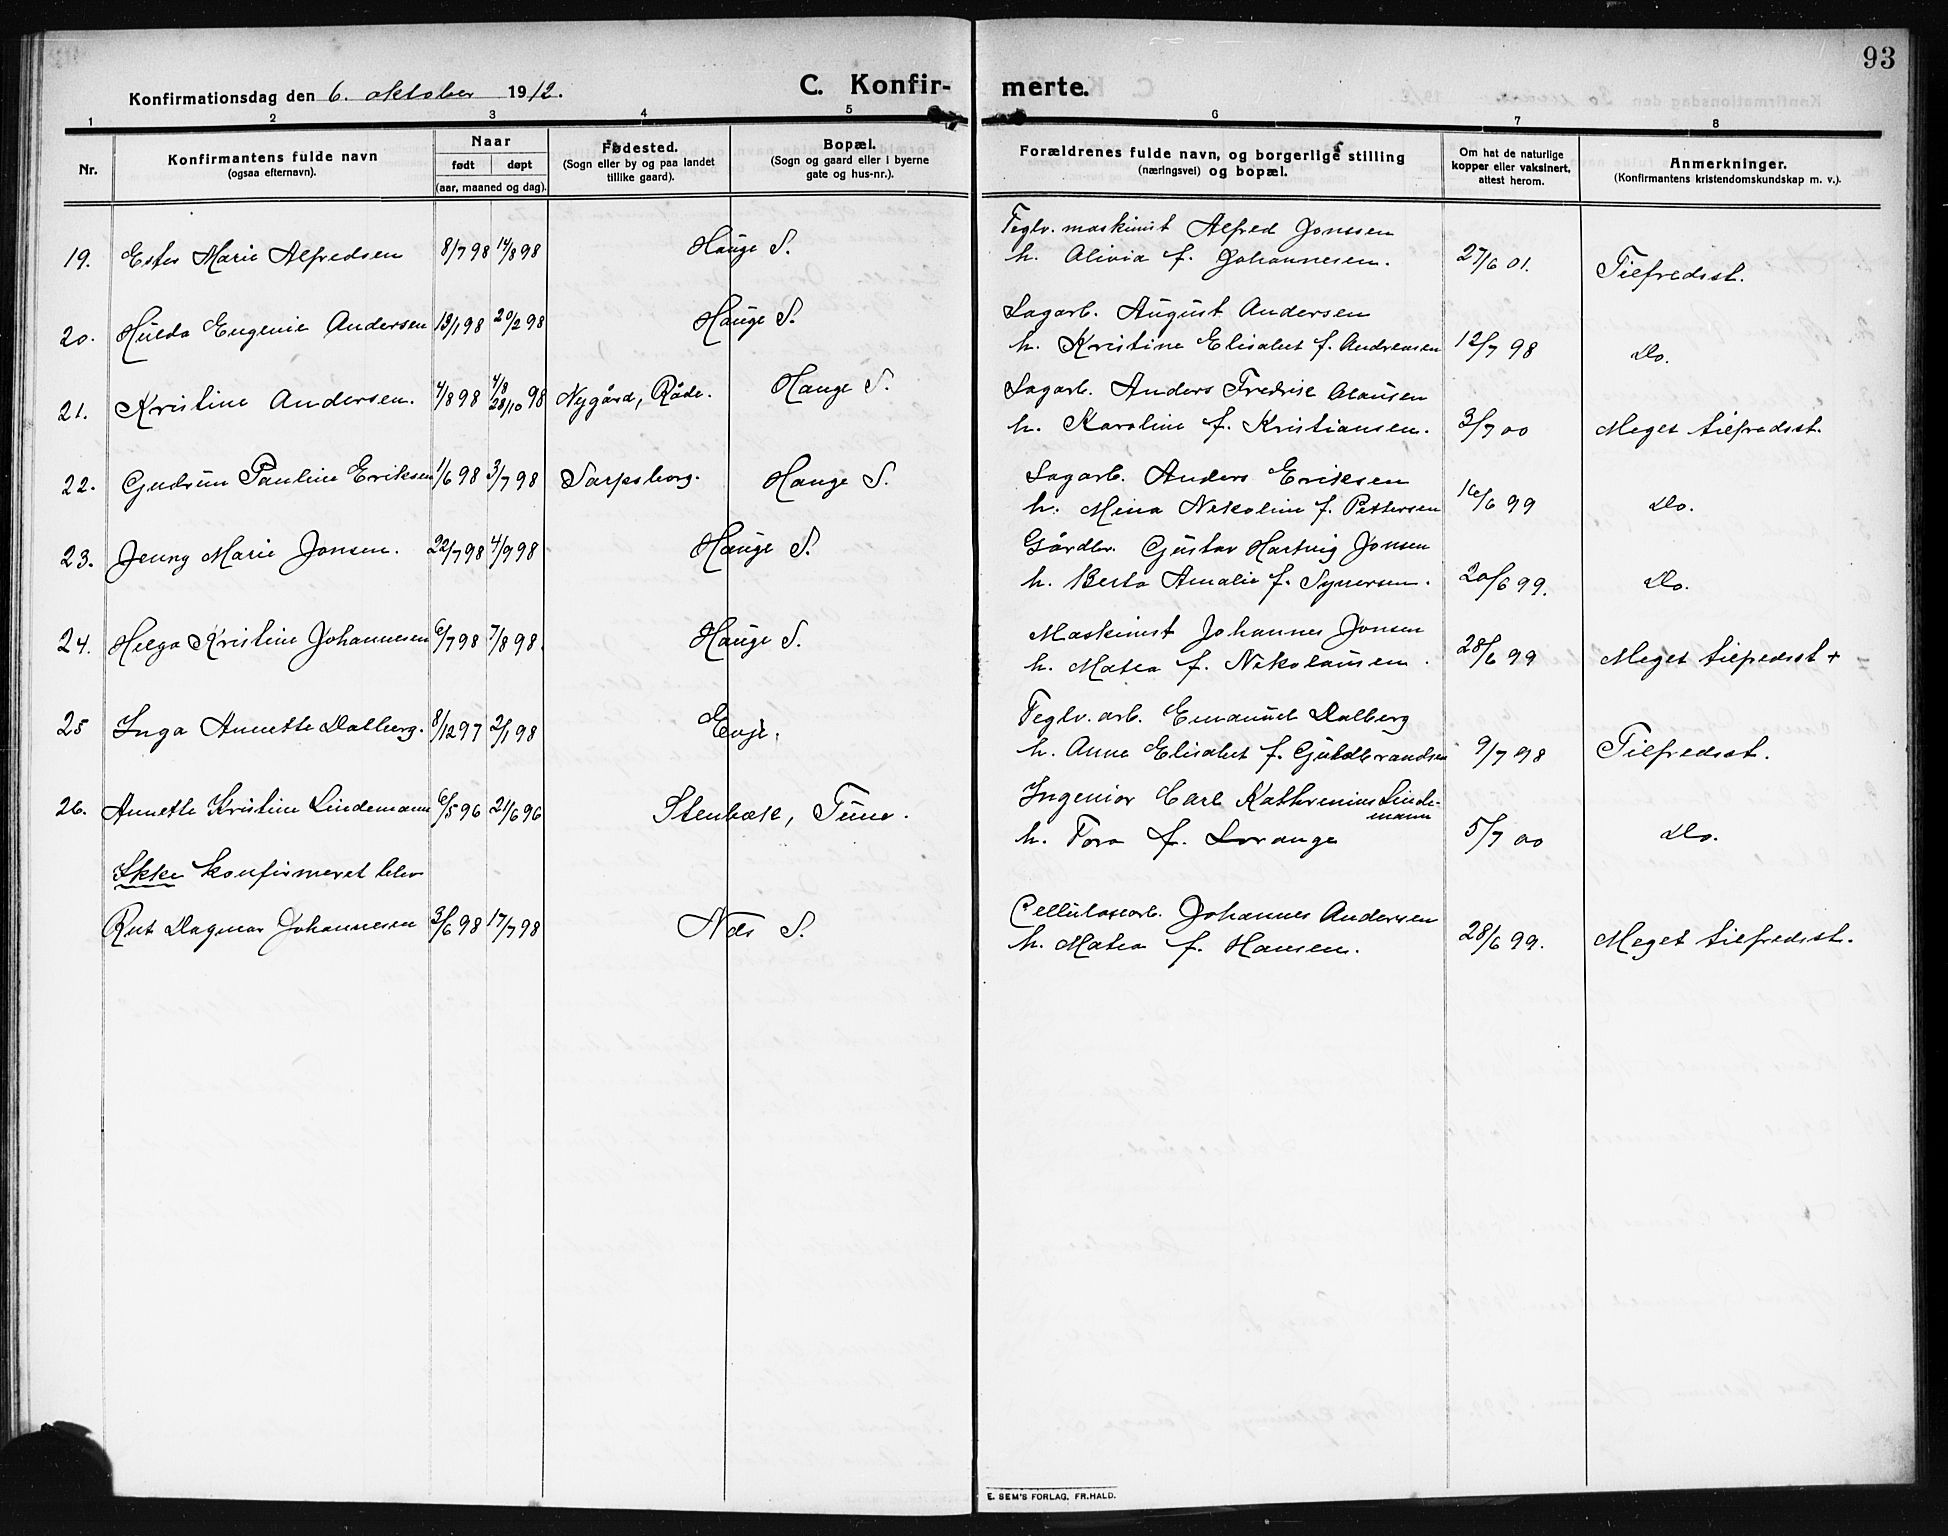 93
Konfirmationsdag den 6. oktober 1912.
C. Konfir- merte.
1 2 3 4 5 6 7 8
Nr.
Konfirmantens fulde navn
(ogsaa efternavn).
Naar
født døpt
(aar, maaned og dag).
Fødested.
(Sogn eller by og paa landet
tillike gaard).
Bopæl.
(Sogn og gaard eller i byerne
gate og hus-nr.).
Forældrenes fulde navn, og borgerlige stilling
(næringsvei) og bopæl.
Om hat de naturlige
kopper eller vaksinert,
attest herom.
Anmerkninger.
(Konfirmantens kristendomskundskap m. v.).
Teglv. maskinist Alfred Jonssen
19. Ester Marie Alfredsen 8/7 98 14/8 98 Hauge S. h. Alivia f. Johannesen. 27/6 01. Tilfredsst.
Sagarb. August Andersen
20. Hulda Eugenie Andersen 13/1 98 20/2 98 Hauge S. h. Kristine Elisabet f. Andreasen 12/7 98 Do.
Sagarb. Anders Fredrik Clausen
21. Kristine Andersen. 4/8 98 4/8 28/10 98 Nygård, Råde. Hauge S. h. Karoline f. Kristiansen. 3/7 00 Meget tilfredsst.
Sagarb. Anders Eriksen
22. Gudrun Pauline Eriksen 1/6 98 3/7 98 Sarpsborg. Hauge S. h. Mina Nikoline f. Pettersen 16/6 99 Do.
Gårdbr. Gustav Hartvig Jonsen
23. Jenny Marie Jonsen. 22/7 98 4/9 98 Hauge S. h. Berta Amalie f. Synersen. 20/6 99. Do.
Maskinist Johannes Jonsen
24. Helga Kristine Johannesen 6/7 98 7/8 98. Hauge S. h. Matea f. Nikolaisen. 28/6 99 Meget tilfredsst +
Teglv. arb. Emanuel Dalberg
25 Inga Annette Dalberg. 8/12 97 2/1 98 Evje. h. Anne Elisabet f. Guldbrandsen 9/7 98 Tilfredsst.
Ingeniør Carl Kathrenius Linde-
mann
26. Annette Kristine Lindemann 6/5 96 21/6 96 Stenbæk, Tune. h. Tora f. Lorange 5/7 00 Do.
Ikke konfirmeret blev
Cellulosearb. Johannes Andersen
Rut Dagmar Johannesen 3/6 98 17/7 98 Nds S. h. Matea f. Hansen. 28/6 99. Meget tilfredsst.
E. SEM'S FORLAG, FR.HALD.